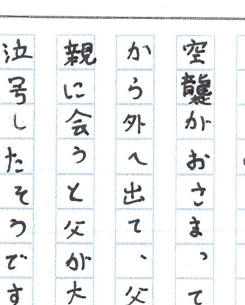 空襲がおさまって
から外へ出て、父
親に会うと父が大
泣号したそうです